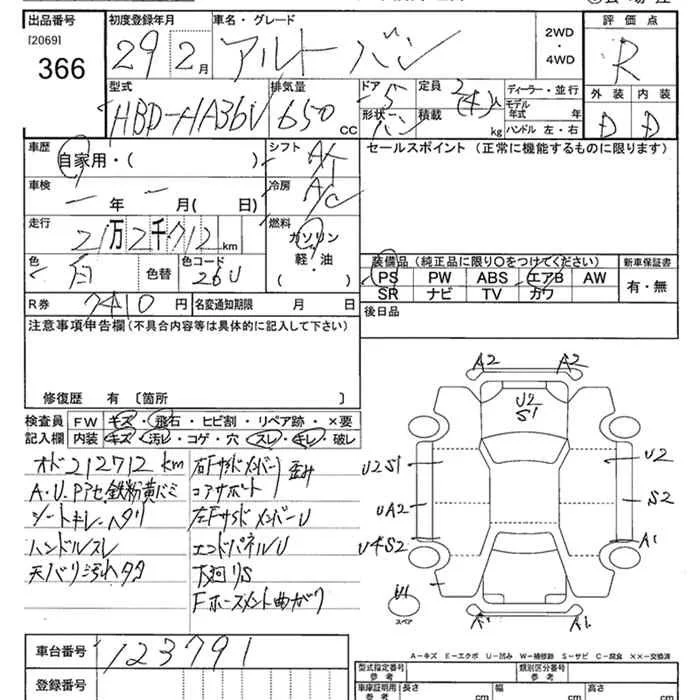 出品番号 初度登録年月 車名・グレード 2WD ・ 4WD 評価点
[2069] 29 2月 アルト バン R
366
型式 排気量 ドア 5 定員 ディーラー・並行 外装 内装
HBD-HA36V 650 cc 形状 バン 積載 kg モデル年式 年 D D
ハンドル 左・右
車歴 自家用・( ) シフト AT セールスポイント (正常に機能するものに限ります)
車検 年 月( 日) 冷房 A/C
走行 21万2千712km 燃料 ガソリン 軽・油 ( )
色 白 色替 色コード 26U 装備品 (純正品に限り○をつけてください) 新車保証書
PS PW ABS エアB AW 有・無
SR ナビ TV カワ
R券 7410円 名変通知期限 月 日 後日品
注意事項申告欄(不具合内容等は具体的に記入して下さい)
修復歴 有 [箇所 ]
検査員 FW キズ・飛石・ヒビ割・リペア跡・×要
記入欄 内装 キズ・汚レ・コゲ・穴・スレ・キレ・破レ
オド212712km
シートキレ・ヘタリ
ハンドルスレ
天バリ汚れ
右Fサイドメンバー 歪み
コアサポート
左Fサイドメンバー U
エンドパネルU
A2 A2
U2
S1
U2S1 U2
UA2 S2
U4S2 A1
U1
スペア
A1 A1
A-キズ E-エクボ U-凹み W-補修跡 S-サビ C-腐食 ××-交換済
車台番号 123791
登録番号
型式指定番号 参考 類別区分番号 参考
車庫証明用 参考 長さ cm 幅 cm 高さ cm